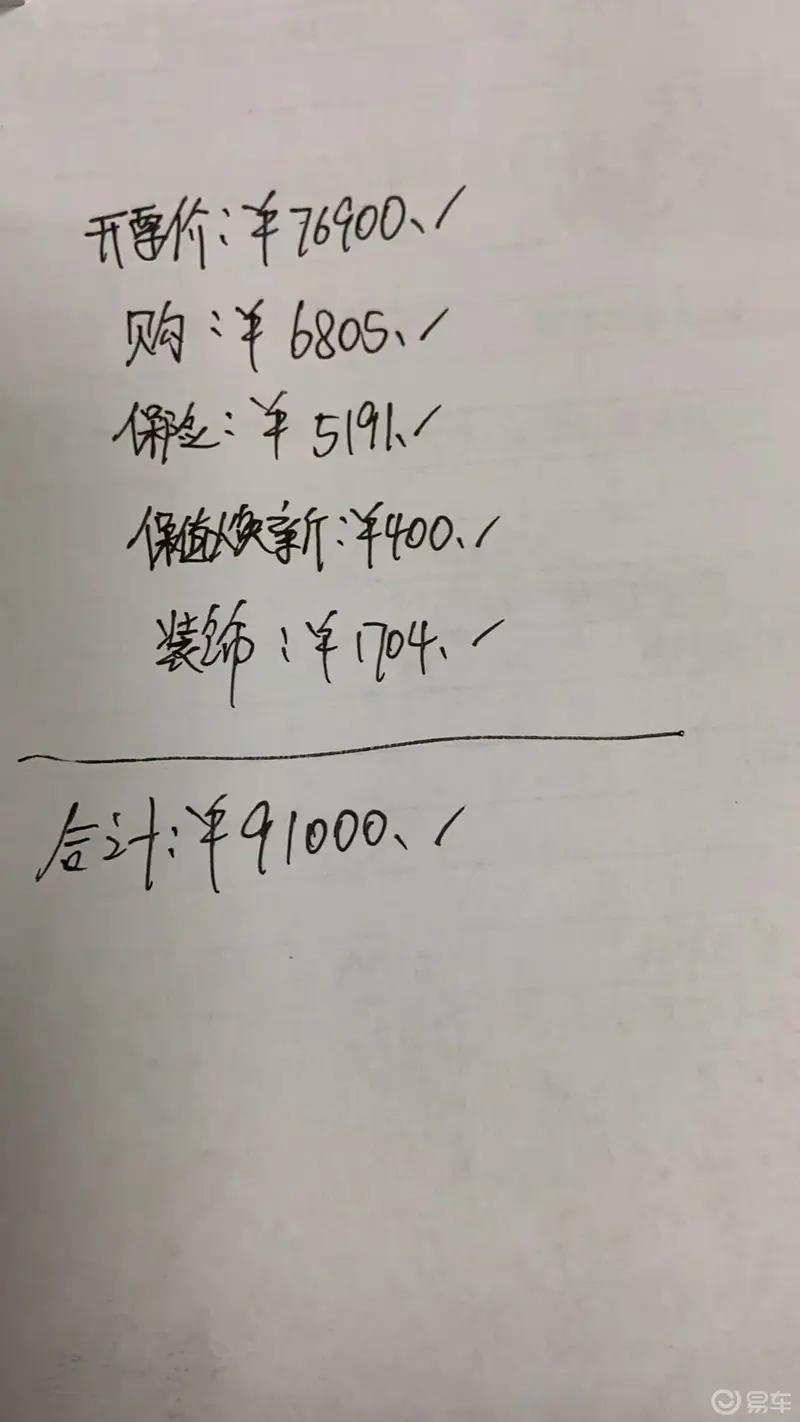 开票价:¥76900、/
购:¥6805、/
保险:¥5191、/
保值焕新:¥400、/
装饰:¥1704、/
合计:¥91000、/
易车